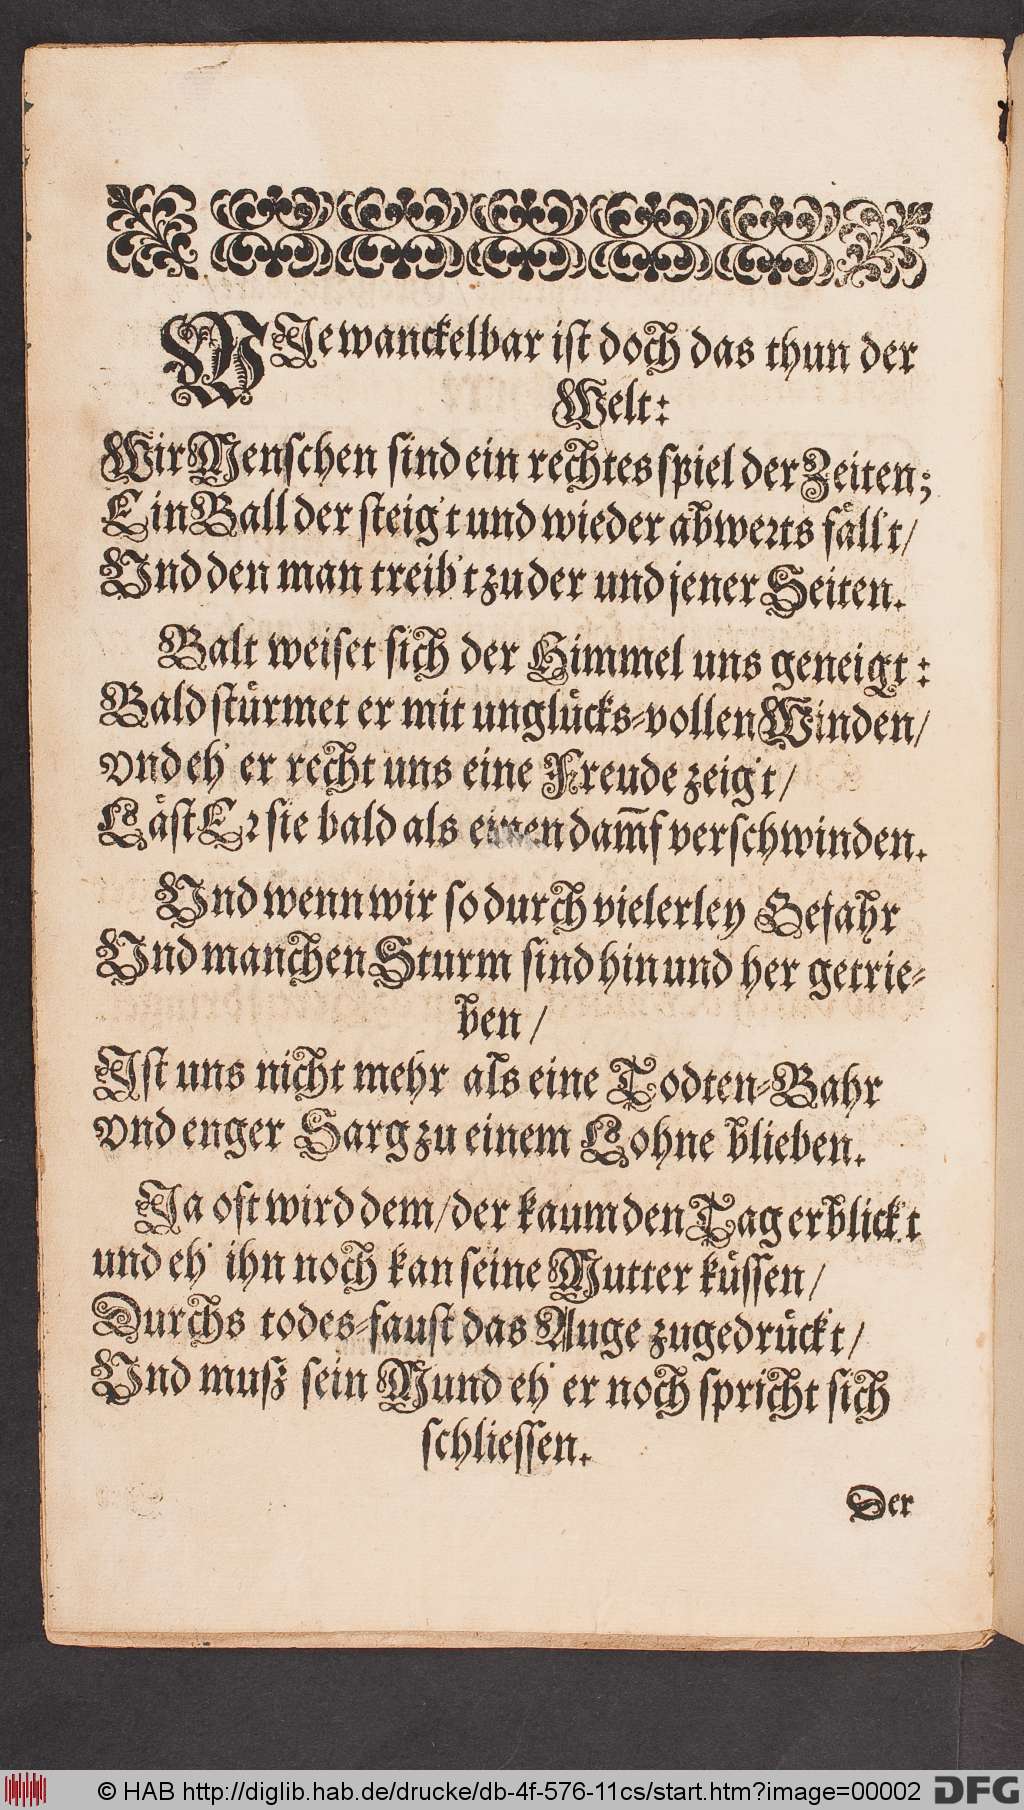 WJe wanckelbar ist doch das thun der
Welt:
Wir Menschen sind ein rechtes spiel der Zeiten;
Ein Ball der steig't und wieder abwerts fäll't/
Und den man treib't zu der und jener Seiten.
Balt weiset sich der Himmel uns geneigt:
Bald stürmet er mit unglücks-vollen Winden/
vnd eh' er recht uns eine Freude zeig't/
Läst Er sie bald als einen dam̃f verschwinden.
Und wenn wir so durch vielerley Gefahr
Und manchen Sturm sind hin und her getrie-
ben/
Jst uns nicht mehr als eine Todten-Bahr
vnd enger Sarg zu einem Lohne blieben.
Ja oft wird dem/ der kaum den Tag erblick't
und eh' ihn noch kan seine Mutter küssen/
Durchs todes-faust das Auge zugedrückt/
Und muß sein Mund eh' er noch spricht sich
schliessen.
Der
© HAB http://diglib.hab.de/drucke/db-4f-576-11cs/start.htm?image=00002 DFG